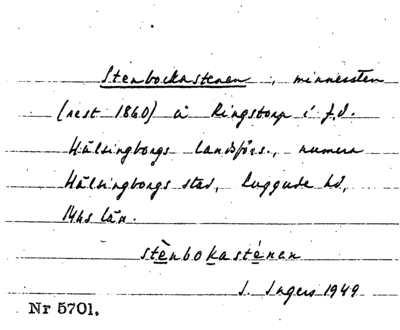 Stenbockastenen, minnessten
(rest 1860) å Ringstorp i f.d.
Hälsingborgs landsförs., numera
Hälsingborgs stad, Luggude hd,
Mhs län.
stènbokasténen
I. Ingers 1949
Nr 5701.